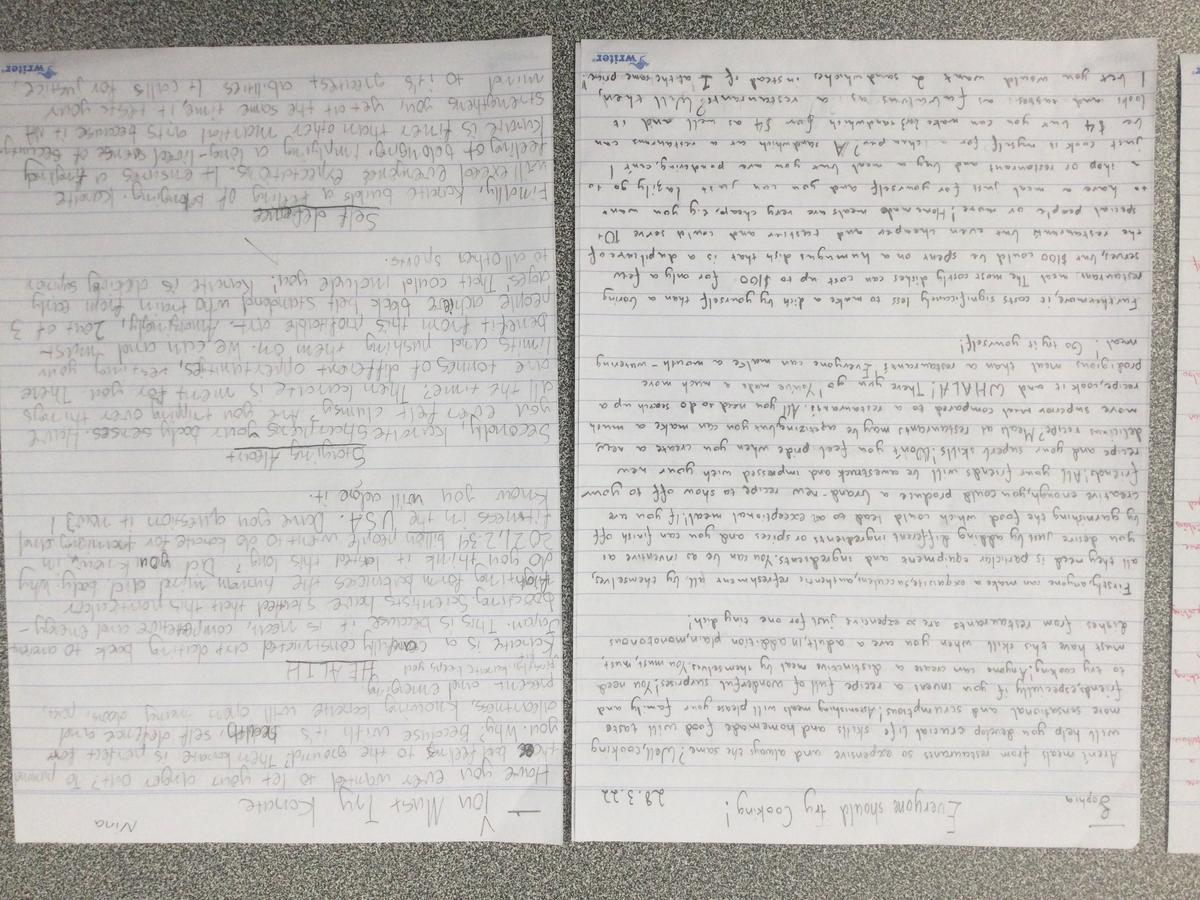 Sophia Everyone should try Cooking! 28.3.22
Aren't meals from restaurants so expensive and always the same? Well cooking
will help you develop crucial life skills and homemade food will taste
more sensational and scrumptious! Astonishing meals will please your family and
friends, especially if you invent a recipe full of wonderful surprises! You need
to try cooking! Anyone can create a distinctive meal by themselves. You must, must,
must have this skill when you are a adult, in addition plain, monotonous
dishes from restaurants are so expensive just for one tiny dish!
Firstly, anyone can make a exquisite, succulent, authentic refreshment all by themselves,
all they need is particular equipment and ingredients. You can be as inventive as
you desire just by adding different ingredients or spices and you can finish off
by garnishing the food which could lead to an exceptional meal! If you are
creative enough, you could produce a brand-new recipe to show off to your
friends! All your friends will be awestruck and impressed with your new
recipe and your superb skills! Don't you feel pride when you create a new
delicious recipe? Meals at restaurants may be appetizing but you can make a much
more superior meal compared to a restaurant. All you need to do search up a
recipe, cook it and WHALA! There you go! You've made a much more
prodigious meal than a restaurant! Everyone can make a mouth-watering
meal. Go try it yourself!
Furthermore, it costs significantly less to make a dish by yourself than a boring
restaurant meal. The most costly dishes can cost up to $100 for only a few
serves, but $100 could be spent on a humungus dish that is a duplicate of
the restaurants but even cheaper and tastier and could serve 10+
special people or more! Home made meals are very cheap, e.g. you want
to have a meal just for yourself and you can just lazily go to
a shop or restaurant and buy a meal but you are pondering, can't I
just cook it myself for a cheaper price? A sandwich at a restaurant can
be $4 but you can make 2 sandwich for $4 as well and it
looks and tastes as fabulous as a restaurants! Well then,
I bet you would want 2 sandwiches instead of 1 at the same price!
writer
Nina
You Must Try Karate
Have you ever wanted to let your anger out? To pummel
that feeling to the ground? Then karate is perfect for
you. Why? Because with it's health, self defence and
alertness, knowing karate will open many doors, past,
present and emerging.
HEALTH
Karate is a carefully constructed art dating back to ancient
Japan. This is because it is neat, competetive and energy-
boosting. Scientists have stated that this particular
fighting form balances the human mind and body. Why
do you think it lasted this long? Did you know, in
2021, 2.34 billion people went to do karate for training and
fitness in the USA. Dare you question it now?! 
Know you will adore it.
Staying Alert
Secondly, karate sharpens your body senses. Have
you ever felt clumsy? Are you tripping over things
all the time? Then karate is meant for you. There
are tonnes of different opportunities, testing your
limits and pushing them on. We can and must
benefit from this profitable art. Amazingly, 2 out of 3
people achieve black belt standard who train from early
ages. That could include you! Karate is clearly superior
to all other sports.
Self defence
Finally, Karate builds a feeling of belonging. Karate
will exceed everyones expectations. It ensures a tingling
feeling of belonging, implying a long-lived sense of security.
Karate is finer than other martial arts because it
strengthens you, yet at the same time, it tests your
mind to it's greatest abilities. It calls for justice,
writer